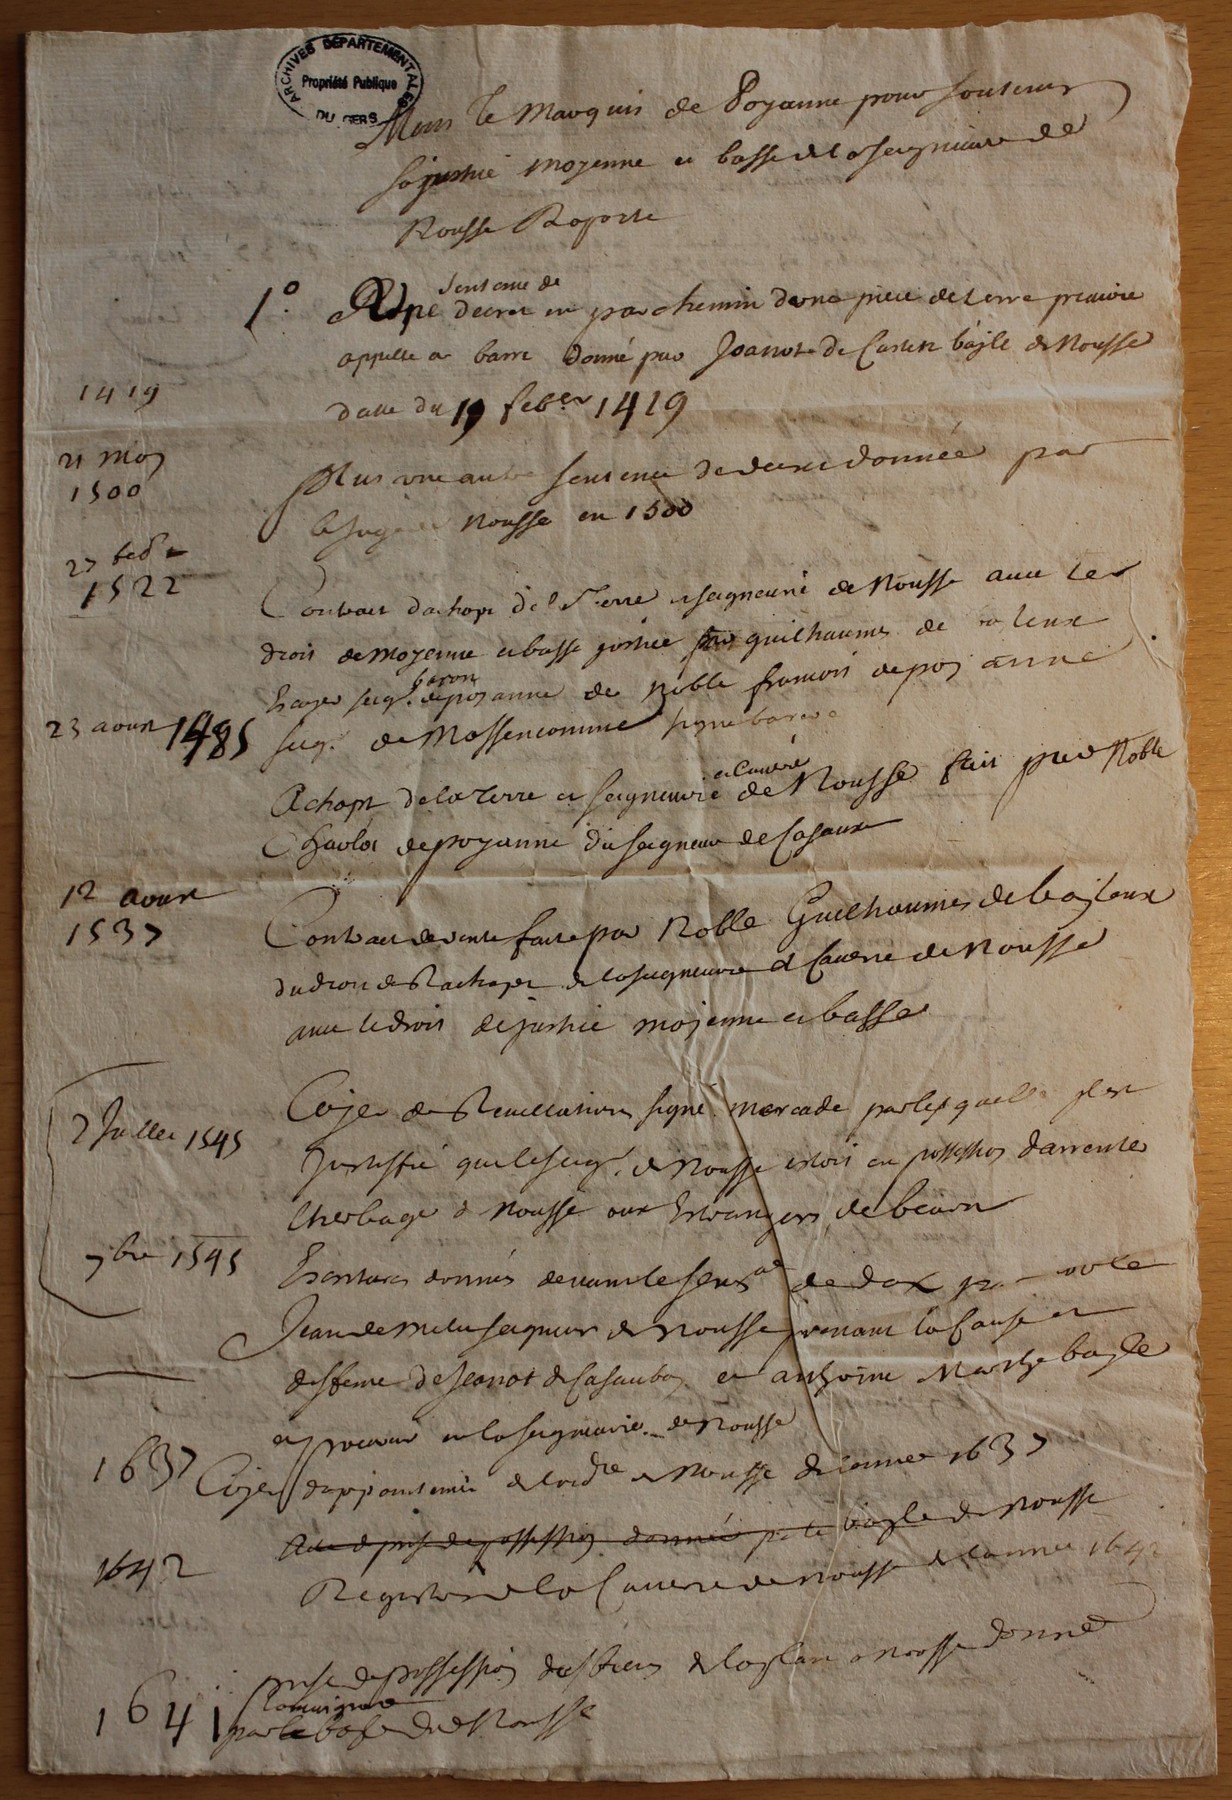 ARCHIVES DÉPARTEMENTALES
Propriété Publique
DU GERS
Mons le Marquis de Poyanne pour soutenir
sa justice moyenne et basse de la seigneurie de
Nousse Raporte
1° sentence de
decret en parchemin dune piece de terre
appelle a barre donné par Joanot de bayle de Nousse
1419
datte du 19 feber 1419
21 may
1500
Plus une autre sentence de decret donnée par
le juge Nousse en 1500
27
1522
Contract dachapt de la Terre et seigneurie de Nousse avec le
droit de moyenne et basse justice par guilhaumes de
baron
seigr. de poyanne de noble francois de poyanne
23 aoust 1485
seigr. de Massencomme signé
et caverie
Achapt de la Terre et seigneurie de Nousse fait par Noble
Charlot de poyanne du seigneur de Casaux
12 aoust
1537
Contract de vente faite par Noble Guilhaumes de
du droit de Rachapt de la seigneurie et Caverie de Nousse
avec le droit de justice moyenne et basse
2 Juillet 1545
Cayer de signé mercade par lesquelles il est
justiffié que le seigr. de Nousse estoit en possession darrenter
lherbage de Nousse aux Estrangers de bearn
7bre 1545
Escritures donnés devant le senal de dax par noble
Jean de seigneur de Nousse prenant la Cause et
deffence de Jeanot de Casaubon et anthoine bayle
et procureur en la seigneurie de Nousse
1637
Cayer dappointemens de Nousse de lannee 1637
Acte de prise de possession donnée par le bayle de Nousse
1642
Registre de la Caverie de Nousse de lannee 1642
prise de possession des biens de a Nousse donnée
1641
par le bayle dud Nousse